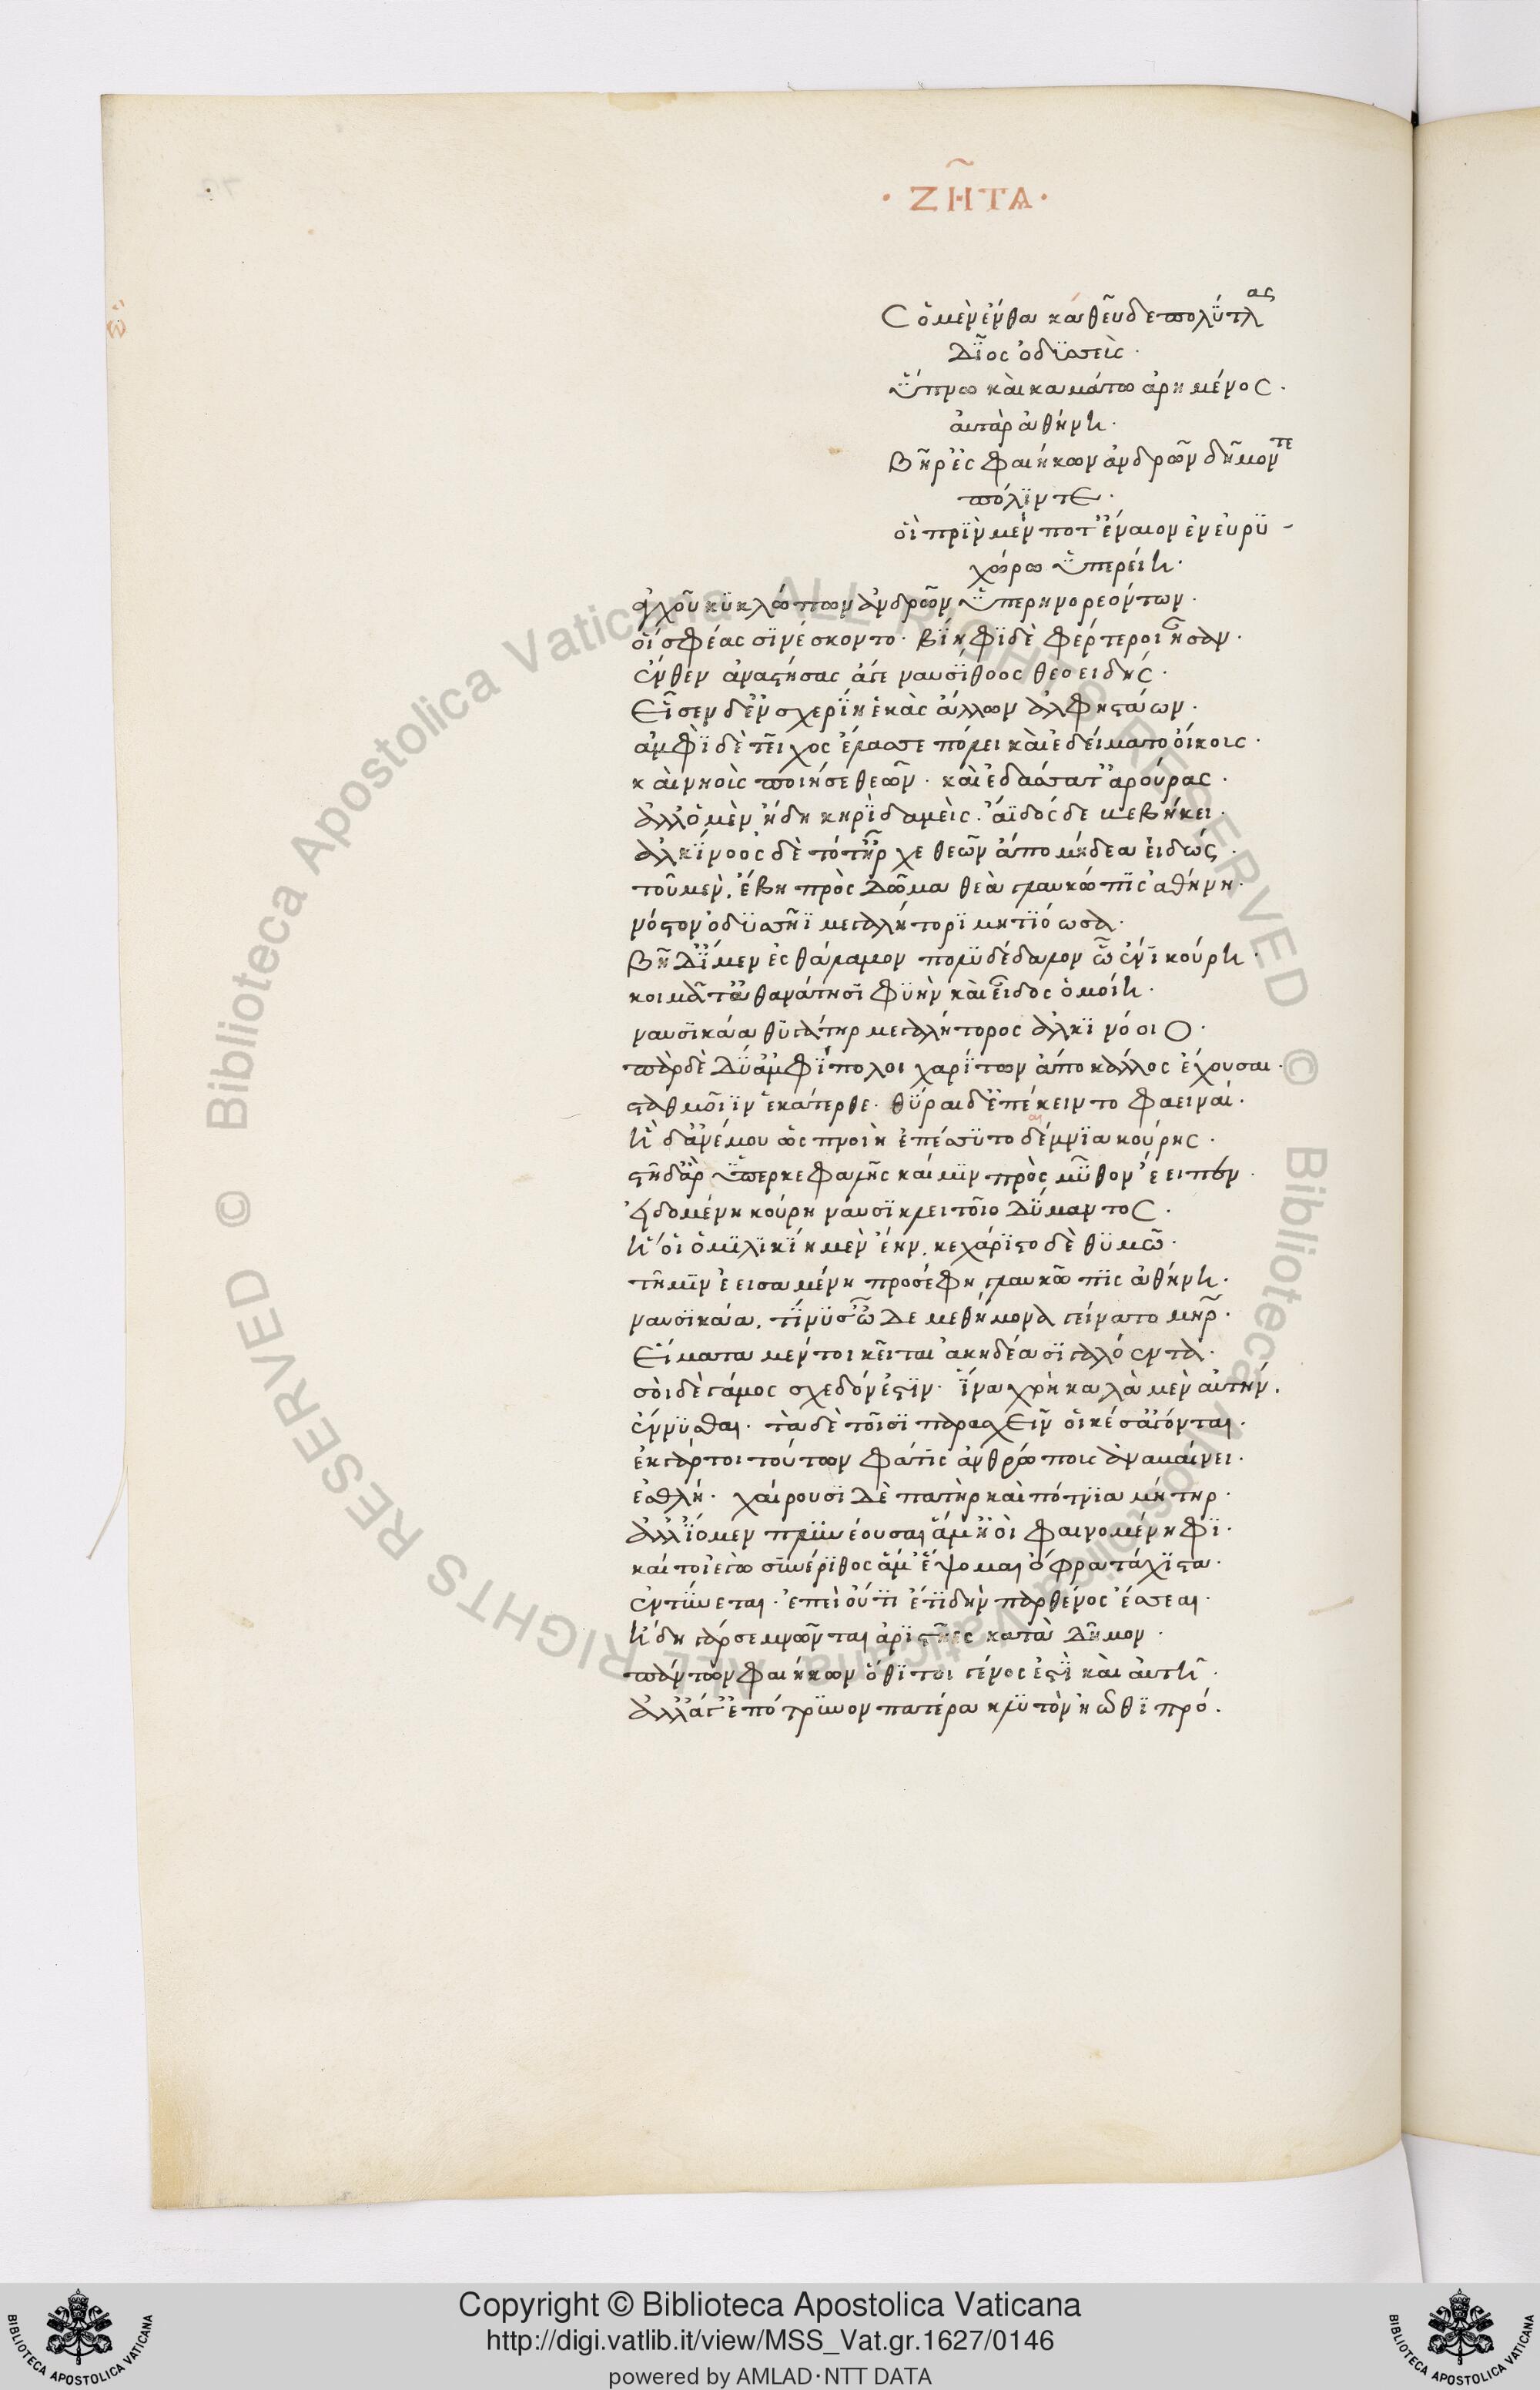 · ΖΗ͂ΤΑ ·
ὣ
Ϲ ὁ μὲν ἔνθα καθεῦδε πολΰτλας
δῖος ὀδϋσσεὺς ·
ὕπνω καὶ καμάτω ἀρημένος ·
ἀυτὰρ ἀθήνη ·
Βῆ ῥ' ἐς φαιήκων ἀνδρῶν δῆμόν τε
πόλϊν τε ·
οἳ πρϊν μέν ποτ' ἔναιον ἐν ἐυρϋ -
χώρω ὑπερείη ·
ἀγχοῦ κϋκλώπων ἀνδρῶν ὑπερηνορεόντων ·
οἵ σφέας σϊνέσκοντο · βΐηφϊ δὲ φέρτεροι ἦσαν ·
ἔνθεν ἀναστήσας ἄγε ναυσΐθοος θεοειδής ·
Εἷσεν δ' ἐν σχερΐη ἑκὰς ἄλλων ἀλφηστάων ·
ἀμφὶ δὲ τεῖχος ἔλασσε πόλει καὶ ἐδείματο ὄικους ·
καὶ νηοὺς ποίησε θεῶν · καὶ ἐδάσσατ' ἀρούρας ·
ἀλλ' ὁ μὲν ἤδη κηρῒ δαμεὶς · ἄϊδόσδε βεβήκει ·
ἀλκΐνοος δὲ τότ' ἦρχε θεῶν ἄπο μήδεα ἐιδώς ·
τοῦ μὲν, ἔβη πρὸς δῶμα θεὰ γλαυκῶπϊς ἀθήνη ·
νόστον ὀδϋσσῆϊ μεγαλήτορϊ μητϊόωσα ·
Βῆ δ' ΐμεν ἐς θάλαμον πολϋδέδαλον ὧ ἔνϊ κούρη ·
κοιμᾶτ' ἀθανάτησϊ φϋὴν καὶ εἶδος ὁμοίη ·
ναυσϊκάα θϋγάτηρ μεγαλήτορος ἀλκϊνόοιο ·
πὰρ δὲ δΰ' ἀμφΐπολοι χαρΐτων ἄπο κάλλος ἔχουσαι ·
σταθμοῖϊν ἑκάτερθε · θΰραι δ' ἐπέκειντο φαειναί ·
ἡ δ' ἀνέμου ὡς πνοιὴ ἐπέσσϋτο δέμνϊα κούρης ·
στῆ δ' ἄρ ὑπερ κεφαλῆς καί μιν πρὸς μῦθον ἔειπεν ·
ἐιδομένη κούρη ναυσϊκλειτοῖο δΰμαντος ·
ἥ ὁι ὁμϊλϊκΐη μὲν ἔην, κεχάρϊστο δὲ θϋμῶ ·
τῆ μιν ἐεισαμένη προσέφη γλαυκῶπϊς ἀθήνη ·
ναυσϊκάα, τΐ νϋ σ' ὧδε μεθήμονα γείνατο μήτηρ ·
Εἵματα μέν τοι κεῖται ἀκηδέα σϊγαλόεντα ·
σοὶ δὲ γάμος σχεδόν ἐστϊν · ἵνα χρὴ καλὰ μὲν ἀυτήν ·
ἕννϋσθαι · τὰ δὲ τοῖσϊ παρασχεῖν ὅι κέ σ' ἄγονται ·
ἐκ γάρ τοι τούτων φάτϊς ἀνθρώποις ἀναβαίνει ·
ἐσθλή · χαίρουσϊ δὲ πατὴρ καὶ πότνϊα μήτηρ ·
ἀλλ' ΐομεν πλϋνέουσαι ἅμ' ἠοῖ φαινομένηφϊ ·
καί τοι ἐγὼ σϋνέρϊθος ἅμ' ἕψομαι ὄφρα τάχϊστα ·
ἐντΰνεαι · ἐπεὶ ὄυ τϊ ἔτϊ δὴν παρθένος ἔσσεαι ·
ἤδη γάρ σε μνῶνται ἀρϊστῆες κατὰ δῆμον ·
πάντων φαιήκων ὅθϊ τοι γένος ἐστῒ καὶ ἀυτῆ ·
ἀλλ' ἄγ' ἐπότρϋνον πατέρα κλϋτὸν ἠῶθϊ πρό ·
Copyright © Biblioteca Apostolica Vaticana
http://digi.vatlib.it/view/MSS_Vat.gr.1627/0146
powered by AMLAD·NTT DATA
BIBLIOTECA APOSTOLICA VATICANA
BIBLIOTECA APOSTOLICA VATICANA
© Biblioteca Apostolica Vaticana ALL RIGHTS RESERVED © Biblioteca Apostolica Vaticana ALL RIGHTS RESERVED